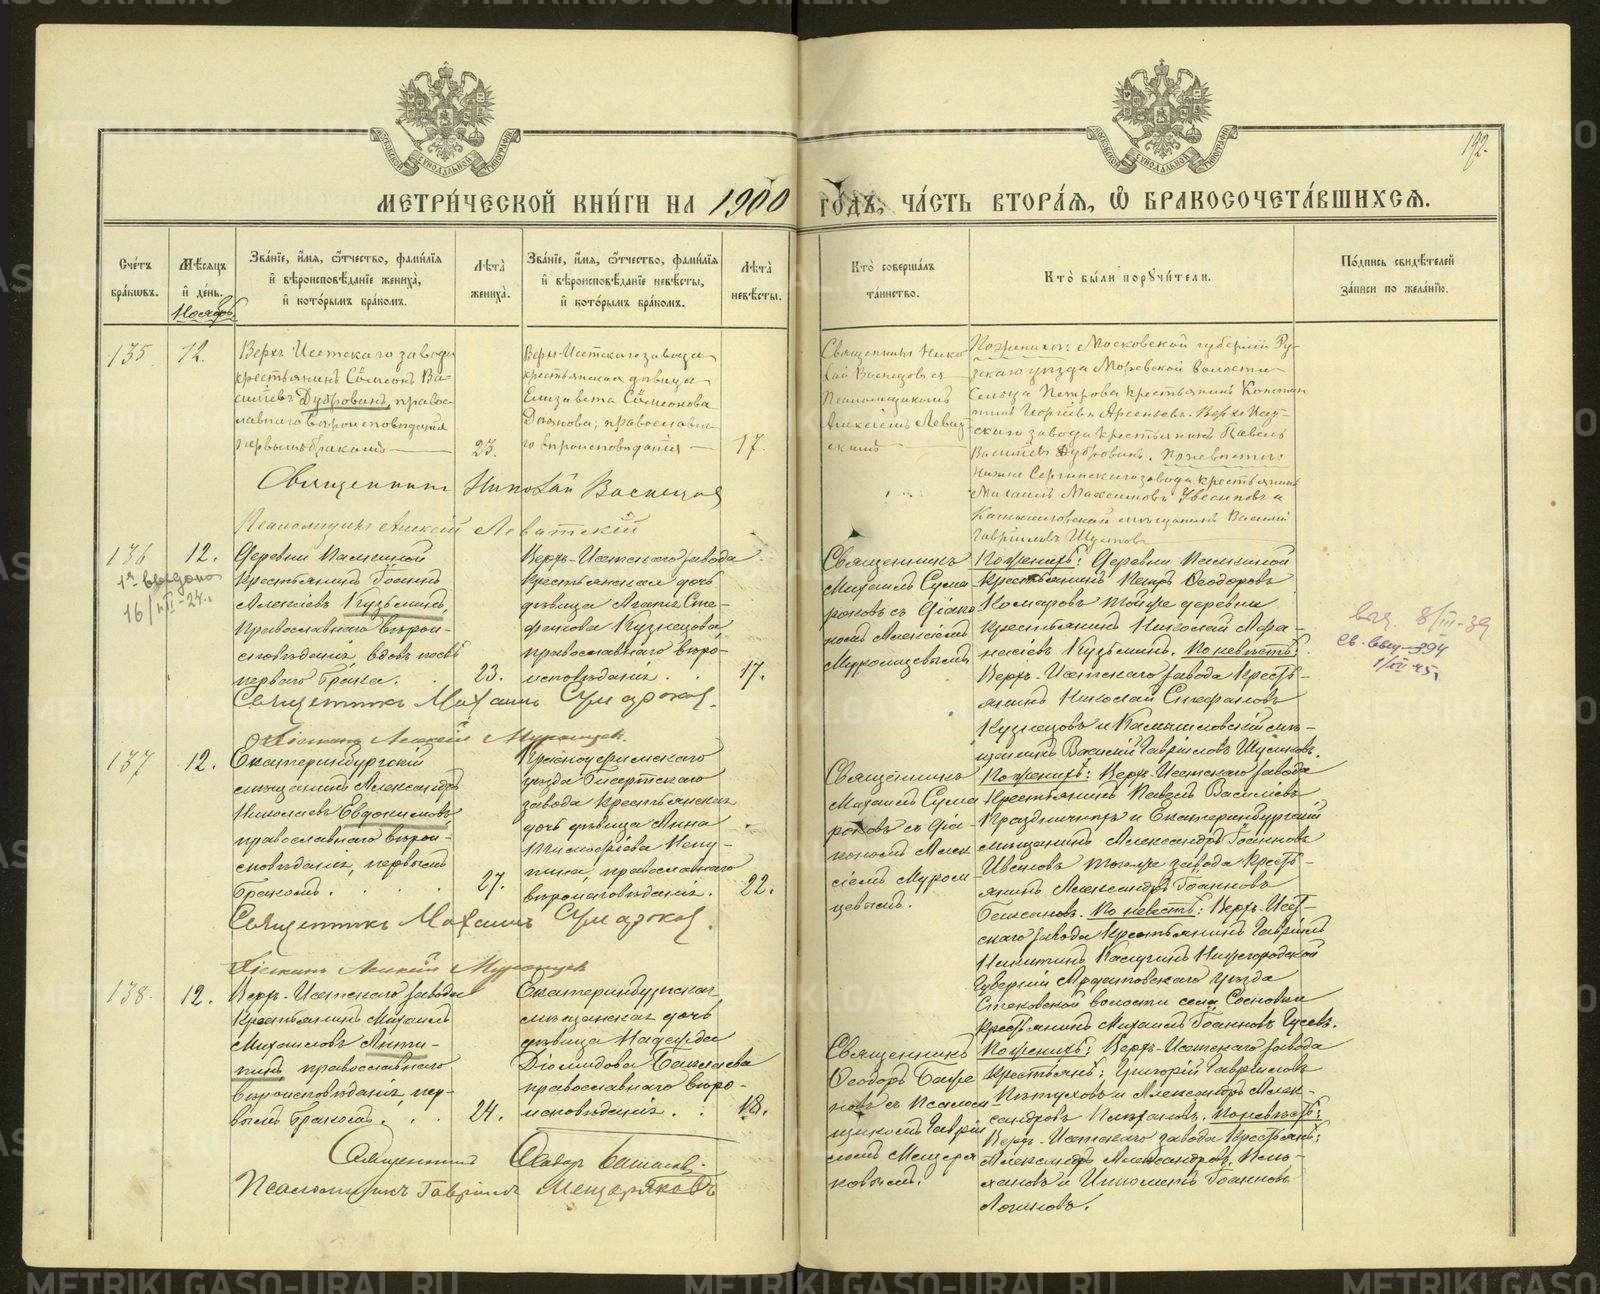 192.
МЕТРИЧЕСКОЙ КНИГИ НА 1900 ГОДЪ, ЧАСТЬ ВТОРАЯ, Ѡ БРАКОСОЧЕТАВШИХСЯ.
Счетъ браковъ.
Мѣсяцъ и день.
Званіе, имя, отчество, фамилія и вѣроисповѣданіе жениха, и которымъ бракомъ.
Лѣта жениха.
Званіе, имя, отчество, фамилія и вѣроисповѣданіе невѣсты, и которымъ бракомъ.
Лѣта невѣсты.
Кто совершалъ таинство.
Кто были поручители.
Подпись свидѣтелей записи по желанію.
Ноябрь
135 12.
Верхъ Исетскаго завода
крестьянинъ Сѵмеонъ Ва-
сильевъ Дубровинъ, правос-
лавнаго вѣроисповѣданія
первымъ бракомъ
23.
Верхъ-Исетскаго завода
крестьянская дѣвица
Елизавета Сѵмеонова
православна-
го вѣроисповѣданія
17.
Священникъ Нико
лай Васнецовъ съ
Псаломщикомъ
Алексѣемъ Левит-
скимъ
По женихѣ: Московской губерніи Ру-
зскаго уѣзда Моревской волости
Сельца Петрова крестьянинъ Констан
тинъ Георгіевъ Арсеньевъ. Верхъ Исет-
скаго завода крестьянинъ Павелъ
Васильевъ Дубровинъ. По невѣстѣ:
Нижне Сергинскаго завода крестьянинъ
Михаилъ Максимовъ и
Камышловской мѣщанинъ Василій
Гавріиловъ Шустовъ
Священникъ Николай Васнецовъ
Псаломщикъ Алексій Левитскій
136 12.
16/VII-24.
Деревни Палкиной
крестьянинъ Іоаннъ
Алексіевъ Кузьминъ,
православнаго вѣрои-
сповѣданія, вдовъ послѣ
перваго брака.
23.
Верхъ-Исетскаго завода
крестьянская дочь
дѣвица Агапія Сте-
фанова Кузнецова
православнаго вѣро-
исповѣданія.
17.
Священникъ
Михаилъ Сума
роковъ съ Діако
номъ Алексіемъ
Муромцевымъ
По женихѣ: Деревни Палкиной
крестьянинъ Петръ Ѳеодоровъ
Комаровъ той же деревни
крестьянинъ Николай Афа-
насіевъ Кузьминъ. По невѣстѣ:
Верхъ-Исетскаго завода кресть-
янинъ Николай Стефановъ
Кузнецовъ и Камышловскій мѣ-
щанинъ Василій Гавріиловъ Шустовъ.
8/III-39
1/XII 45
Священникъ Михаилъ Сумароковъ.
Діаконъ Алексѣй Муромцевъ.
137 12.
Екатеринбургскій
мѣщанинъ Александръ
Николаевъ Евдокимовъ
православнаго вѣрои-
сповѣданія, первымъ
бракомъ.
27.
Красноуфимскаго
уѣзда Бисертскаго
завода крестьянская
дочь дѣвица Анна
Тимофеева
православнаго
вѣроисповѣданія.
22.
Священникъ
Михаилъ Сума
роковъ съ Діа-
кономъ Алек
сіемъ Муром-
цевымъ.
По женихѣ: Верхъ-Исетскаго завода
крестьянинъ Павелъ Васильевъ
Праздничныхъ и Екатеринбургскій
мѣщанинъ Александръ Іоанновъ
Ивановъ того же завода кресть-
янинъ Александръ Іоанновъ
По невѣстѣ: Верхъ-Исет-
скаго завода крестьянинъ Гавріилъ
Никитинъ Нижегородской
губерніи Ардатовскаго уѣзда
волости села Сосновки
крестьянинъ Михаилъ Іоанновъ Гусевъ.
Священникъ Михаилъ Сумароковъ.
Діаконъ Алексѣй Муромцевъ
138. 12.
Верхъ-Исетскаго завода
крестьянинъ Михаилъ
Михаиловъ Анти-
пинъ, православнаго
вѣроисповѣданія, пер-
вымъ бракомъ.
24.
Екатеринбургская
мѣщанская дочь
дѣвица Надежда
Діомидова
православнаго вѣро-
исповѣданія.
18.
Священникъ
Ѳеодоръ Баже
новъ съ Псалом
щикомъ Гаврі
иломъ Мещеря
ковымъ.
По женихѣ: Верхъ-Исетскаго завода
крестьянъ: Григорій Гавріиловъ
Пѣтуховъ и Александръ Алек-
сандровъ По невѣстѣ:
Верхъ-Исетскаго завода крестьянъ:
Александръ Александровъ
и Ипполитъ Іоанновъ
Логиновъ.
Священникъ Ѳеодоръ
Псаломщикъ Гавріилъ Мещеряковъ
METRIKI.GASO-URAL.RU